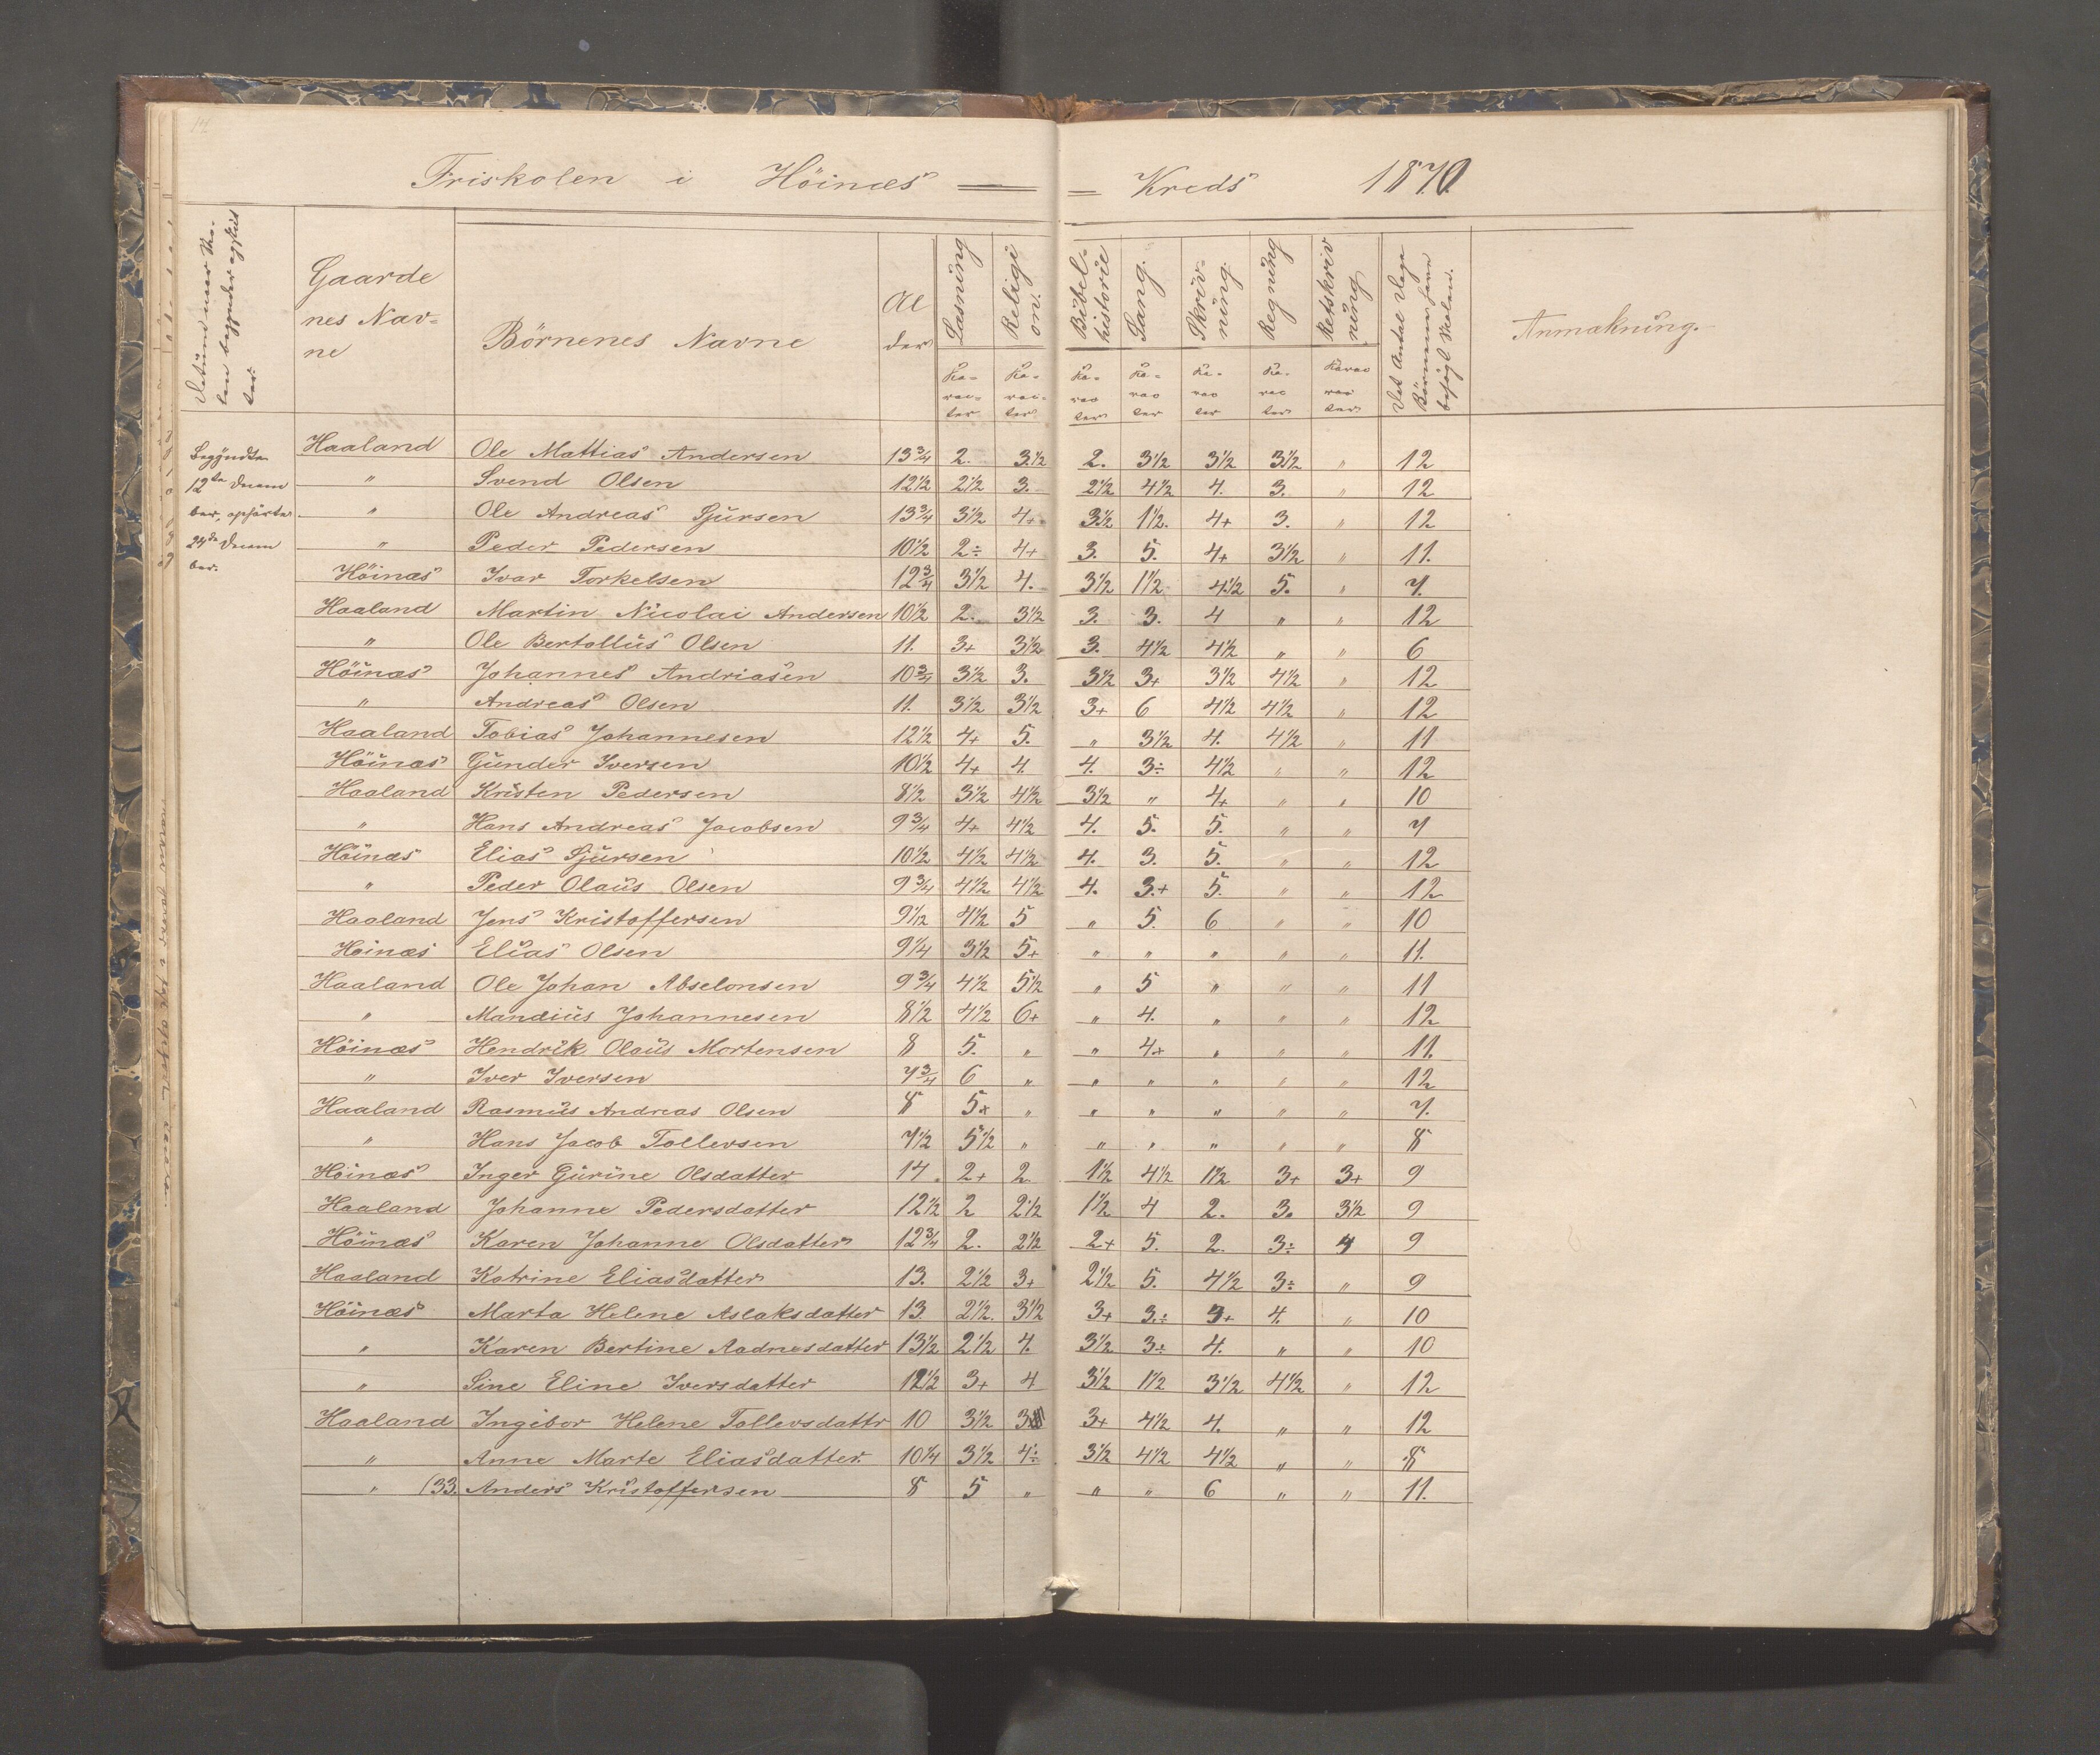 14
Friskolen i Höinæs = = Kreds 1870.
Gaarde
nes Nav=
ne
Börnenes Navne
Al
der
Læsning
Religi
on.
Bibel=
historie
Sang.
Skriv=
ning.
Regning
Retskriv
ning
Det Antal Dage
Börnene have
besögt Skolen.
Anmækning.
Ka= rac= ter
Ka= rac= ter.
Ka= rac ter
Ka= rac ter
Ka= rac ter
Ka= rac ter
Karac ter
Begyndte
12te Decem
ber, ophörte
24de Decem
ber.
Haaland Ole Mattias Andersen 13¾ 2. 3½ 2. 3½ 3½ 3½ " 12
" Svend Olsen 12½ 2½ 3. 2½ 4½ 4. 3. " 12
" Ole Andreas Sjursen 13¾ 3½ 4+ 3½ 1½. 4+ 3. " 12
" Peder Pedersen 10½ 2÷ 4+ 3. 5. 4+ 3½ " 11.
Höinæs Ivar Torkelsen 12¾ 3½ 4. 3½ 1½ 4½ 5. " 7.
Haaland Martin Nicolai Andersen 10½ 2. 3½ 3. 3. 4 " " 12
" Ole Bertollus Olsen 11. 3+ 3½ 3. 4½ 4½ " " 6
Höinæs Johannes Andriasen 10¾ 3½ 3. 3½ 3+ 3½ 4½ " 12
" Andreas Olsen 11. 3½ 3½ 3+ 6 4½ 4½ " 12
Haaland Tobias Johannesen 12½ 4+ 5. " 3½ 4. 4½ " 11
Höinæs Gunder Iversen 10½ 4+ 4. 4. 3÷ 4½ " " 12
Haaland Kristen Pedersen 8½ 3½ 4½ 3½ " 4+ " " 10
" Hans Andreas Jacobsen 9¾ 4+ 4½ 4. 5. 5. " " 7
Höinæs Elias Sjursen 10½ 4½ 4½ 4. 3. 5. " " 12
" Peder Olaus Olsen 9¾ 4½ 4½ 4. 3.+ 5. " " 12
Haaland Jens Kristoffersen 9½ 4½ 5 " 5. 6 " " 10
Höinæs Elias Olsen 9¼ 3½ 5+ " " " " " 11.
Haaland Ole Johan Abselonsen 9¾ 4½ 5½ " 5 " " " 11
" Mandius Johannesen 8½ 4½ 6+ " 4. " " " 12
Höinæs Hendrik Olaus Mortensen 8 5. " " 4+ " " " 11.
" Iver Iversen 7¾ 6 " " " " " " 12
Haaland Rasmus Andreas Olsen 8 5+ " " " " " " 7.
" Hans Jacob Tollevsen 7½ 5½ " " " " " " 8
Höinæs Inger Gurine Olsdatter 14. 2+ 2 1½ 4½ 1½ 3+ 3+ 9
Haaland Johanne Pedersdatter 12½ 2 2½ 1½ 4 2. 3. 3½ 9
Höinæs Karen Johanne Olsdatter 12¾ 2. 2½ 2+ 5. 2. 3÷ 4 9
Haaland Katrine Eliasdatter 13. 2½ 3+ 2½ 5. 4½ 3÷ " 9
Höinæs Marta Helene Aslaksdatter 13. 2½. 3½ 3+ 3÷ 4+ 4. " 10
" Karen Bertine Aadnesdatter 13½ 2½ 4. 3½ 3÷ 4. " " 10
" Sine Eline Iversdatter 12½ 3+ 4 3½ 1½ 3½ 4½ " 12
Haaland Ingibor Helene Tollevsdattr 10 3½ 3 3+ 4½ 4. " " 12
" Anne Marte Eliasdatter. 10¼ 3½ 4÷ 3½ 4½ 4½ " " 8
" (33. Anders Kristoffersen 8 5 " " " 6 " " 11.